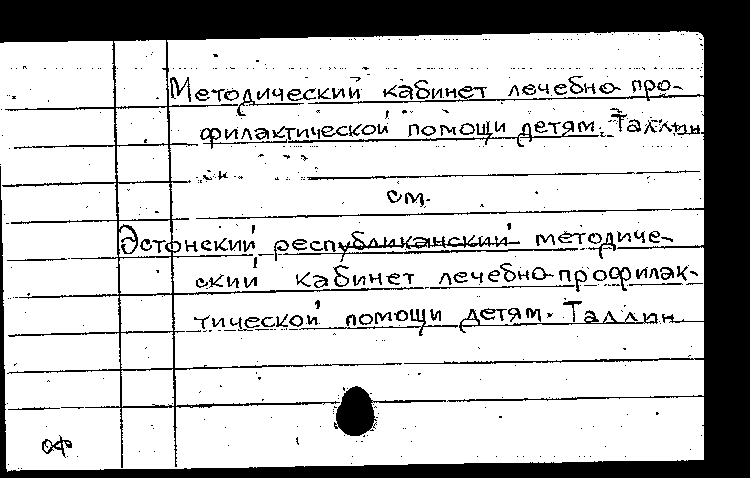 Методический кабинет лечебно-про-
филактической помощи детям. Таллин
см.
Эстонский республиканский методиче-
ский кабинет лечебно-профилак-
тической помощи детям. Таллин
ОФ